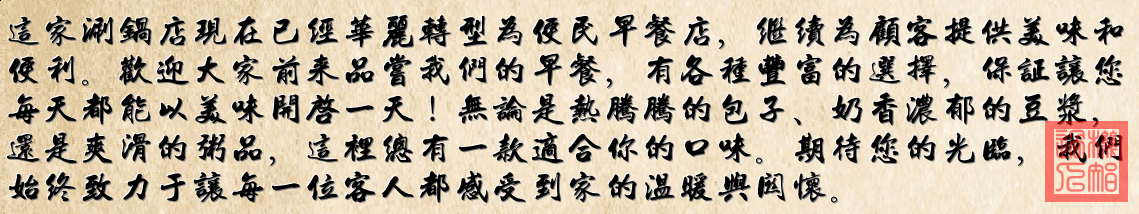 這家涮鍋店現在已經華麗轉型為便民早餐店，繼續為顧客提供美味和
便利。歡迎大家前來品嘗我們的早餐，有各種豐富的選擇，保証讓您
每天都能以美味開啓一天！無論是熱騰騰的包子、奶香濃郁的豆漿，
還是爽滑的粥品，這裡總有一款適合你的口味。期待您的光臨，我們
始終致力于讓每一位客人都感受到家的溫暖與関懷。